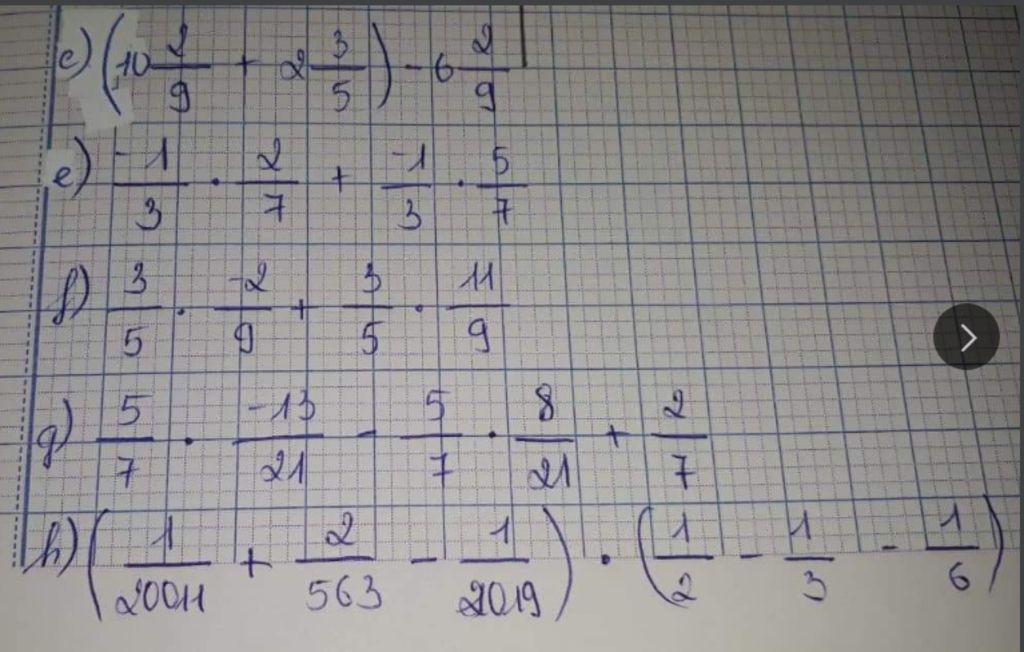 c) (10 2/9 + 2 3/5) - 6 2/9
e) -1/3 · 2/7 + -1/3 · 5/7
f) 3/5 · -2/9 + 3/5 · 11/9
g) 5/7 · -13/21 - 5/7 · 8/21 + 2/7
h) (1/20011 + 2/563 - 1/2019) · (1/2 - 1/3 - 1/6)